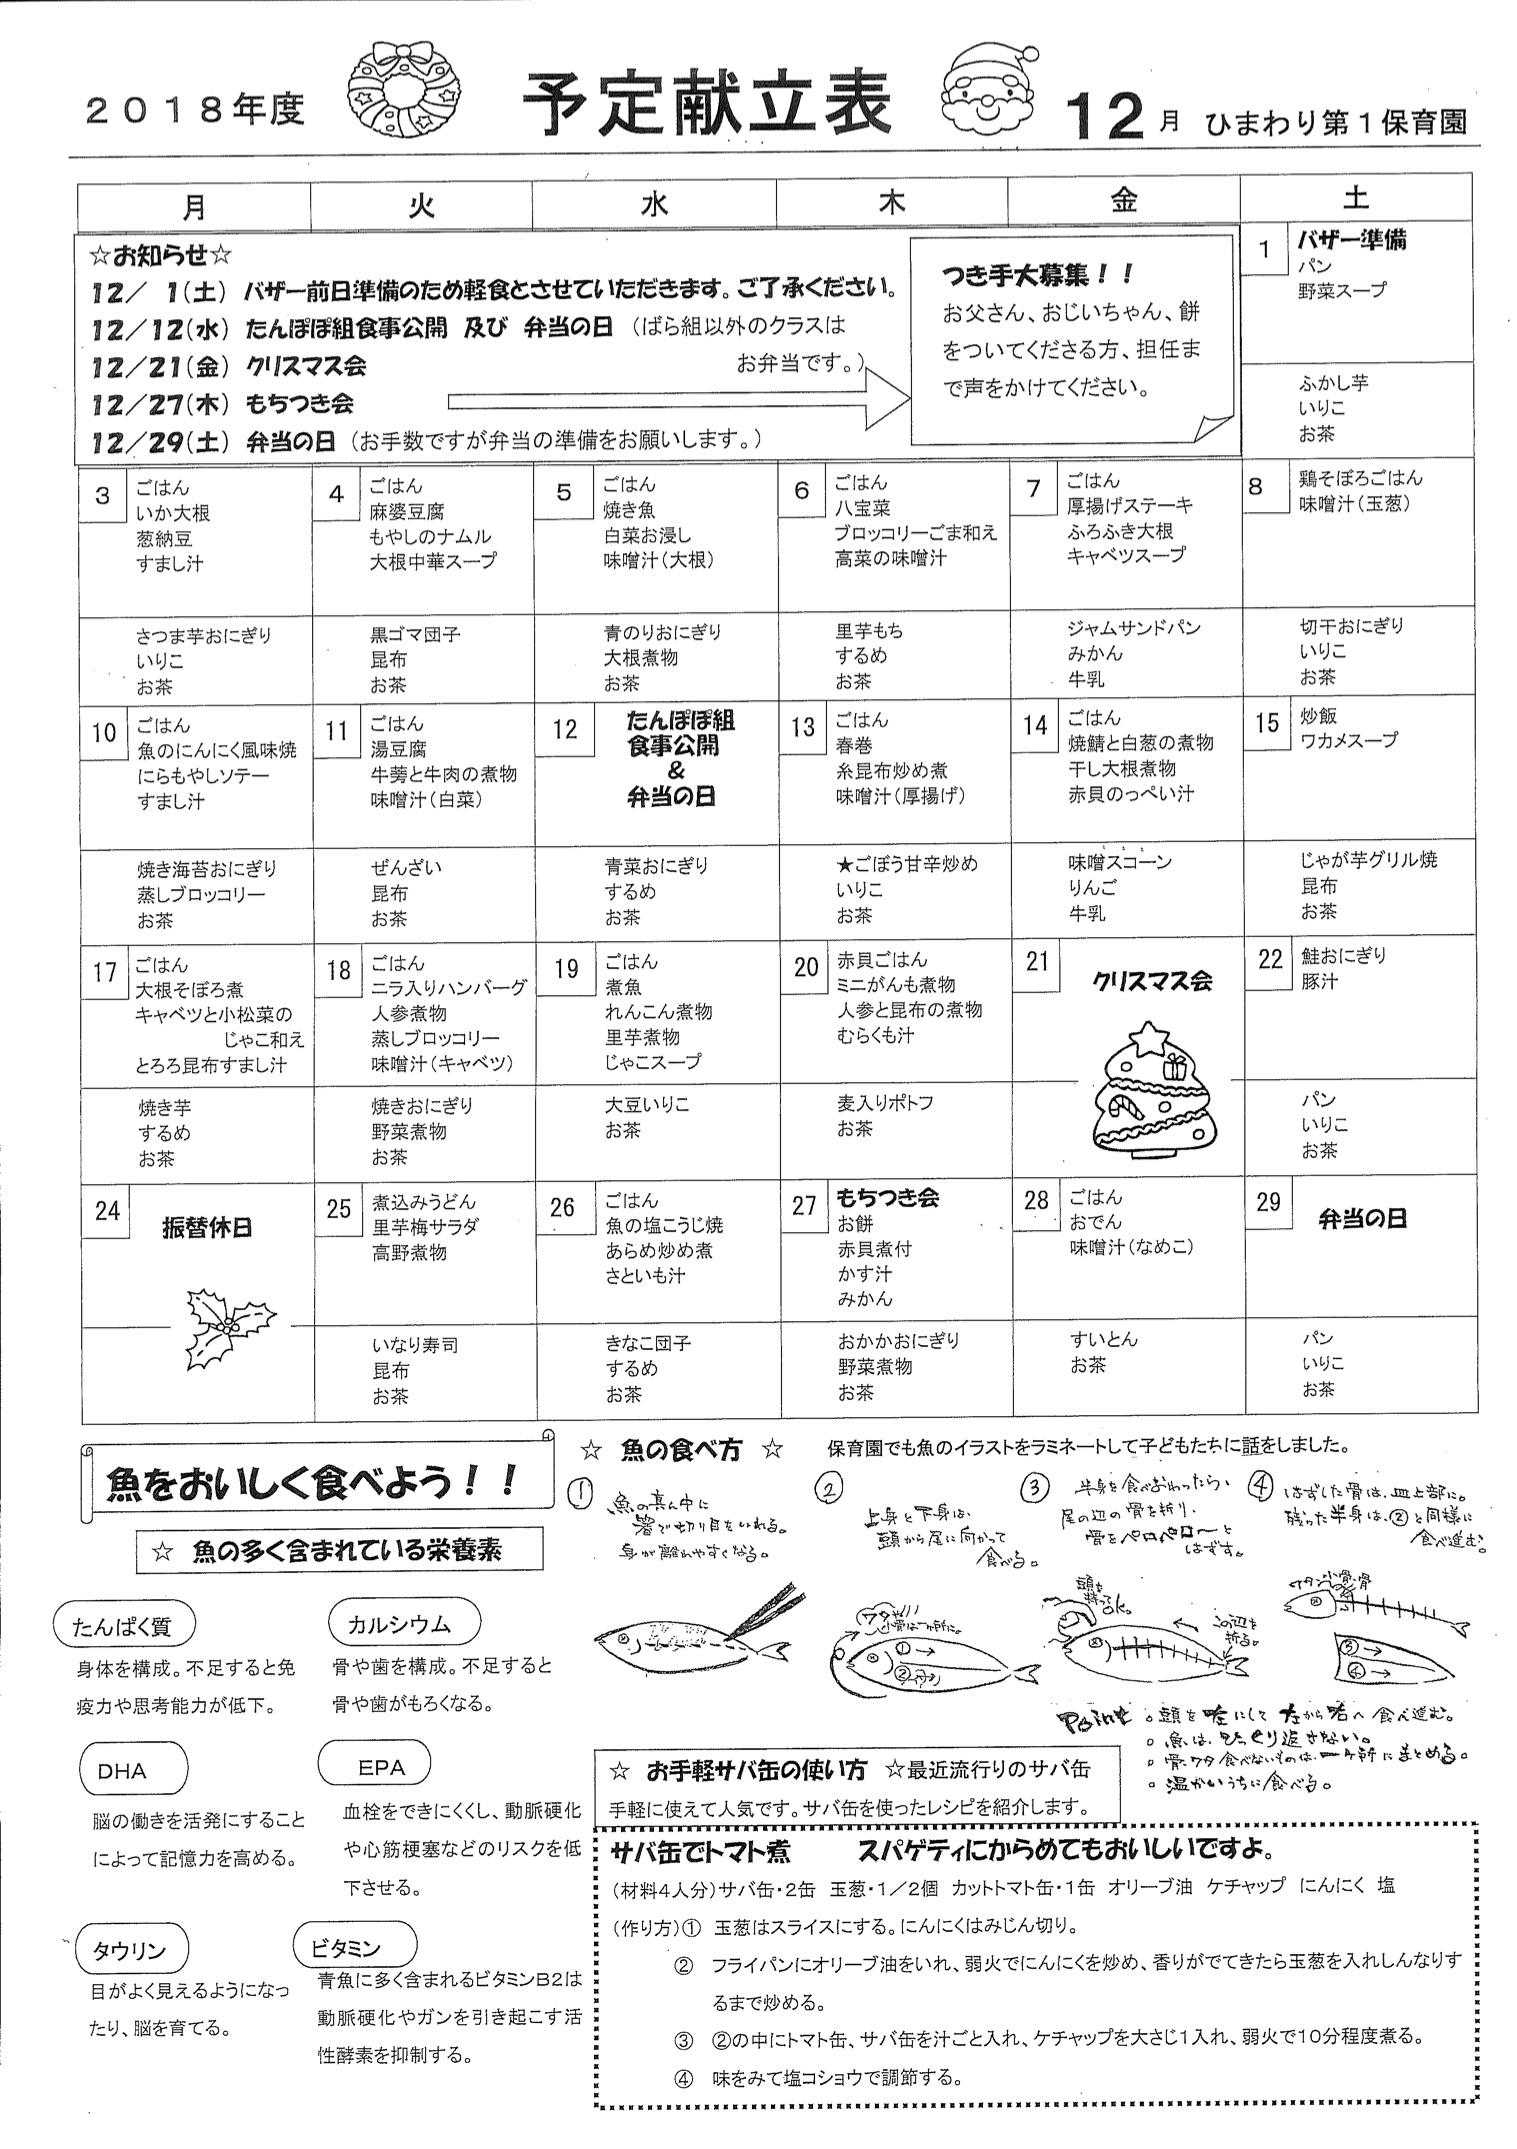 2018年度 予定献立表 12月 ひまわり第1保育園
月 火 水 木 金 土
☆お知らせ☆
12/ 1(土) バザー前日準備のため軽食とさせていただきます。ご了承ください。
12/12(水) たんぽぽ組食事公開 及び 弁当の日 (ばら組以外のクラスは
お弁当です。)
12/21(金) クリスマス会
12/27(木) もちつき会
12/29(土) 弁当の日 (お手数ですが弁当の準備をお願いします。)
つき手大募集！！
お父さん、おじいちゃん、餅
をついてくださる方、担任ま
で声をかけてください。
1 バザー準備
パン
野菜スープ
ふかし芋
いりこ
お茶
3 ごはん
いか大根
葱納豆
すまし汁
さつま芋おにぎり
いりこ
お茶
4 ごはん
麻婆豆腐
もやしのナムル
大根中華スープ
黒ゴマ団子
昆布
お茶
5 ごはん
焼き魚
白菜お浸し
味噌汁(大根)
青のりおにぎり
大根煮物
お茶
6 ごはん
八宝菜
ブロッコリーごま和え
高菜の味噌汁
里芋もち
するめ
お茶
7 ごはん
厚揚げステーキ
ふろふき大根
キャベツスープ
ジャムサンドパン
みかん
牛乳
8 鶏そぼろごはん
味噌汁(玉葱)
切干おにぎり
いりこ
お茶
10 ごはん
魚のにんにく風味焼
にらもやしソテー
すまし汁
焼き海苔おにぎり
蒸しブロッコリー
お茶
11 ごはん
湯豆腐
牛蒡と牛肉の煮物
味噌汁(白菜)
ぜんざい
昆布
お茶
12 たんぽぽ組
食事公開
&
弁当の日
青菜おにぎり
するめ
お茶
13 ごはん
春巻
糸昆布炒め煮
味噌汁(厚揚げ)
★ごぼう甘辛炒め
いりこ
お茶
14 ごはん
焼鯖と白葱の煮物
干し大根煮物
赤貝のっぺい汁
味噌スコーン
りんご
牛乳
15 炒飯
ワカメスープ
じゃが芋グリル焼
昆布
お茶
17 ごはん
大根そぼろ煮
キャベツと小松菜の
じゃこ和え
とろろ昆布すまし汁
焼き芋
するめ
お茶
18 ごはん
ニラ入りハンバーグ
人参煮物
蒸しブロッコリー
味噌汁(キャベツ)
焼きおにぎり
野菜煮物
お茶
19 ごはん
煮魚
れんこん煮物
里芋煮物
じゃこスープ
大豆いりこ
お茶
20 赤貝ごはん
ミニがんも煮物
人参と昆布の煮物
むらくも汁
麦入りポトフ
お茶
21 クリスマス会
22 鮭おにぎり
豚汁
パン
いりこ
お茶
24 振替休日
25 煮込みうどん
里芋梅サラダ
高野煮物
いなり寿司
昆布
お茶
26 ごはん
魚の塩こうじ焼
あらめ炒め煮
さといも汁
きなこ団子
するめ
お茶
27 もちつき会
お餅
赤貝煮付
かす汁
みかん
おかかおにぎり
野菜煮物
お茶
28 ごはん
おでん
味噌汁(なめこ)
すいとん
お茶
29 弁当の日
パン
いりこ
お茶
魚をおいしく食べよう！！
☆ 魚の多く含まれている栄養素
たんぱく質
身体を構成。不足すると免
疫力や思考能力が低下。
カルシウム
骨や歯を構成。不足すると
骨や歯がもろくなる。
DHA
脳の働きを活発にすること
によって記憶力を高める。
EPA
血栓をできにくくし、動脈硬化
や心筋梗塞などのリスクを低
下させる。
タウリン
目がよく見えるようになっ
たり、脳を育てる。
ビタミン
青魚に多く含まれるビタミンB2は
動脈硬化やガンを引き起こす活
性酵素を抑制する。
☆ 魚の食べ方 ☆ 保育園でも魚のイラストをラミネートして子どもたちに話をしました。
① 魚の真ん中に
箸で切り目をいれる。
身が離れやすくなる。
② 上身と下身は、
頭から尾に向かって
食べる。
③ 半身を食べおわったら、
尾の辺の骨を折り、
骨をペロペローと
はずす。
④ はずした骨は、皿上部に。
残った半身は、②と同様に
食べ進む。
①→
②
頭を
持ってOK。
この辺を
折る。
③→
④→
Point 。頭を左にして 左から右へ 食べ進む。
。魚は、ひっくり返さない。
。骨・ワタ 食べないものは、一ヶ所にまとめる。
。温かいうちに食べる。
☆ お手軽サバ缶の使い方 ☆最近流行りのサバ缶
手軽に使えて人気です。サバ缶を使ったレシピを紹介します。
サバ缶でトマト煮 スパゲティにからめてもおいしいですよ。
(材料4人分)サバ缶・2缶 玉葱・1/2個 カットトマト缶・1缶 オリーブ油 ケチャップ にんにく 塩
(作り方)① 玉葱はスライスにする。にんにくはみじん切り。
② フライパンにオリーブ油をいれ、弱火でにんにくを炒め、香りがでてきたら玉葱を入れしんなりす
るまで炒める。
③ ②の中にトマト缶、サバ缶を汁ごと入れ、ケチャップを大さじ1入れ、弱火で10分程度煮る。
④ 味をみて塩コショウで調節する。